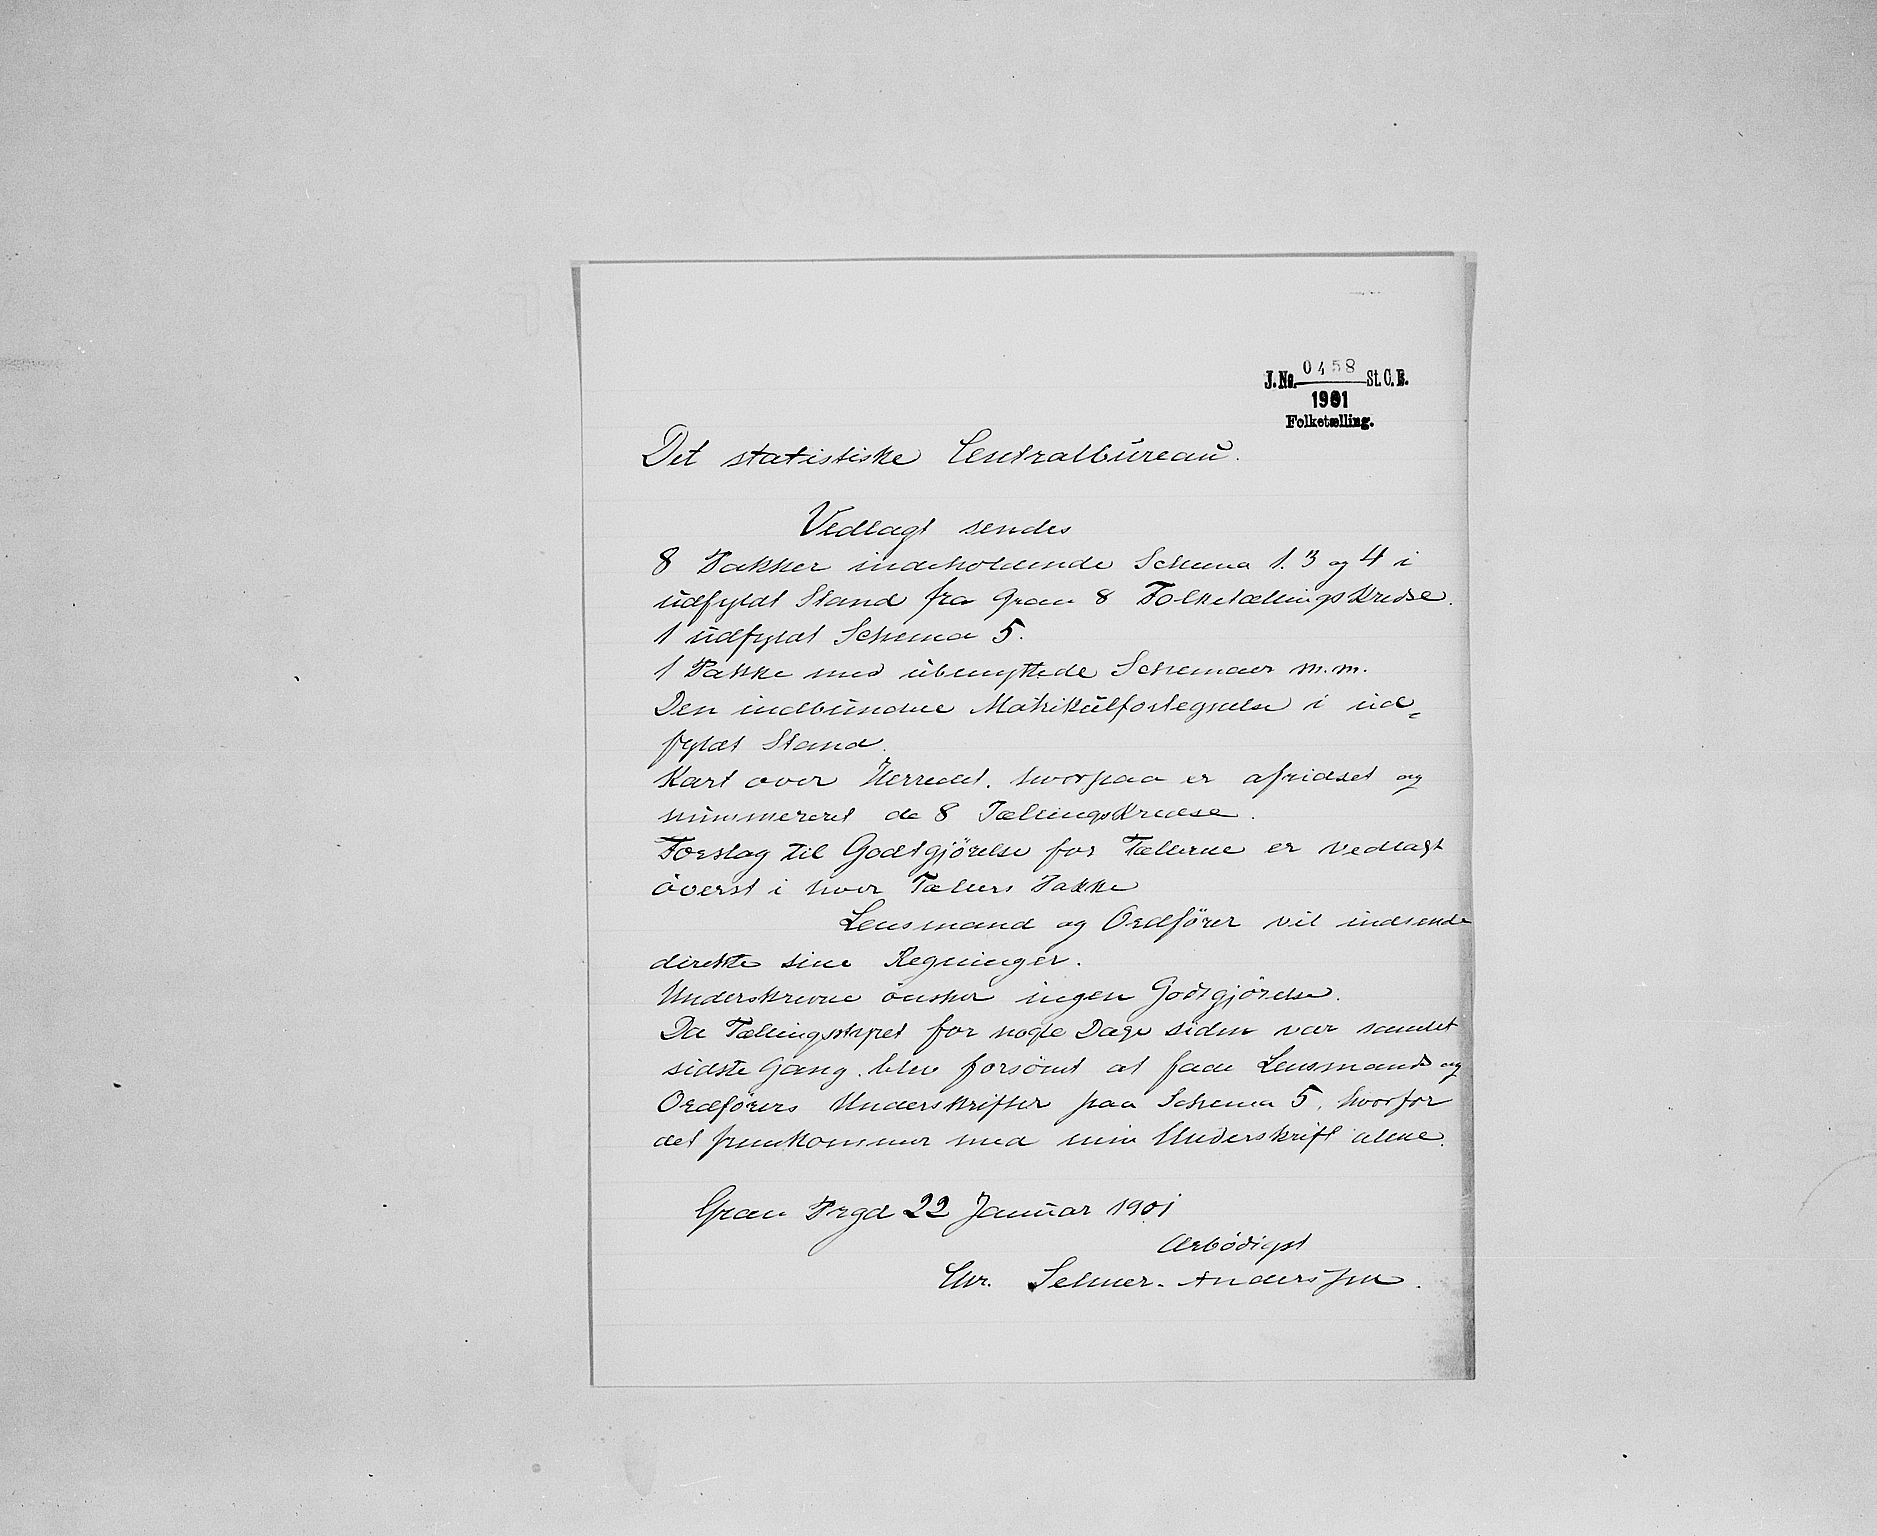 J.No. 0458 St.C.B.
1901
Folketælling.
Det statistiske Centralbureau.
Vedlagt sendes
8 Pakker indeholdende Schema 1. 3 og 4 i
udfyldt Stand fra Gran 8 Folketællingskredse.
1 udfyldt Schema 5.
1 Pakke med ubenyttede Schemaer m.m.
Den indbundne Matrikulfortegnelse i ud=
fyldt Stand.
Kart over Herredet, hvorpaa er afridset og
nummereret de 8 Tællingskredse.
Forslag til Godtgjörelse for Tællerne er vedlagt
överst i hver Tællers Pakke
Lensmand og Ordförer vil indsende
direkte sine Regninger.
Underskrevne önsker ingen Godtgjörelse.
Da Tællingsstyret for nogle Dage siden var samlet
sidste Gang, blev forsömt at faae Lensmands og
Ordförers Underskrifter paa Schema 5, hvorfor
det fremkommer med min Underskrift alene.
Gran Prgd 22 Januar 1901
Ærbödigst
Chr. Selmer-Anderssen.